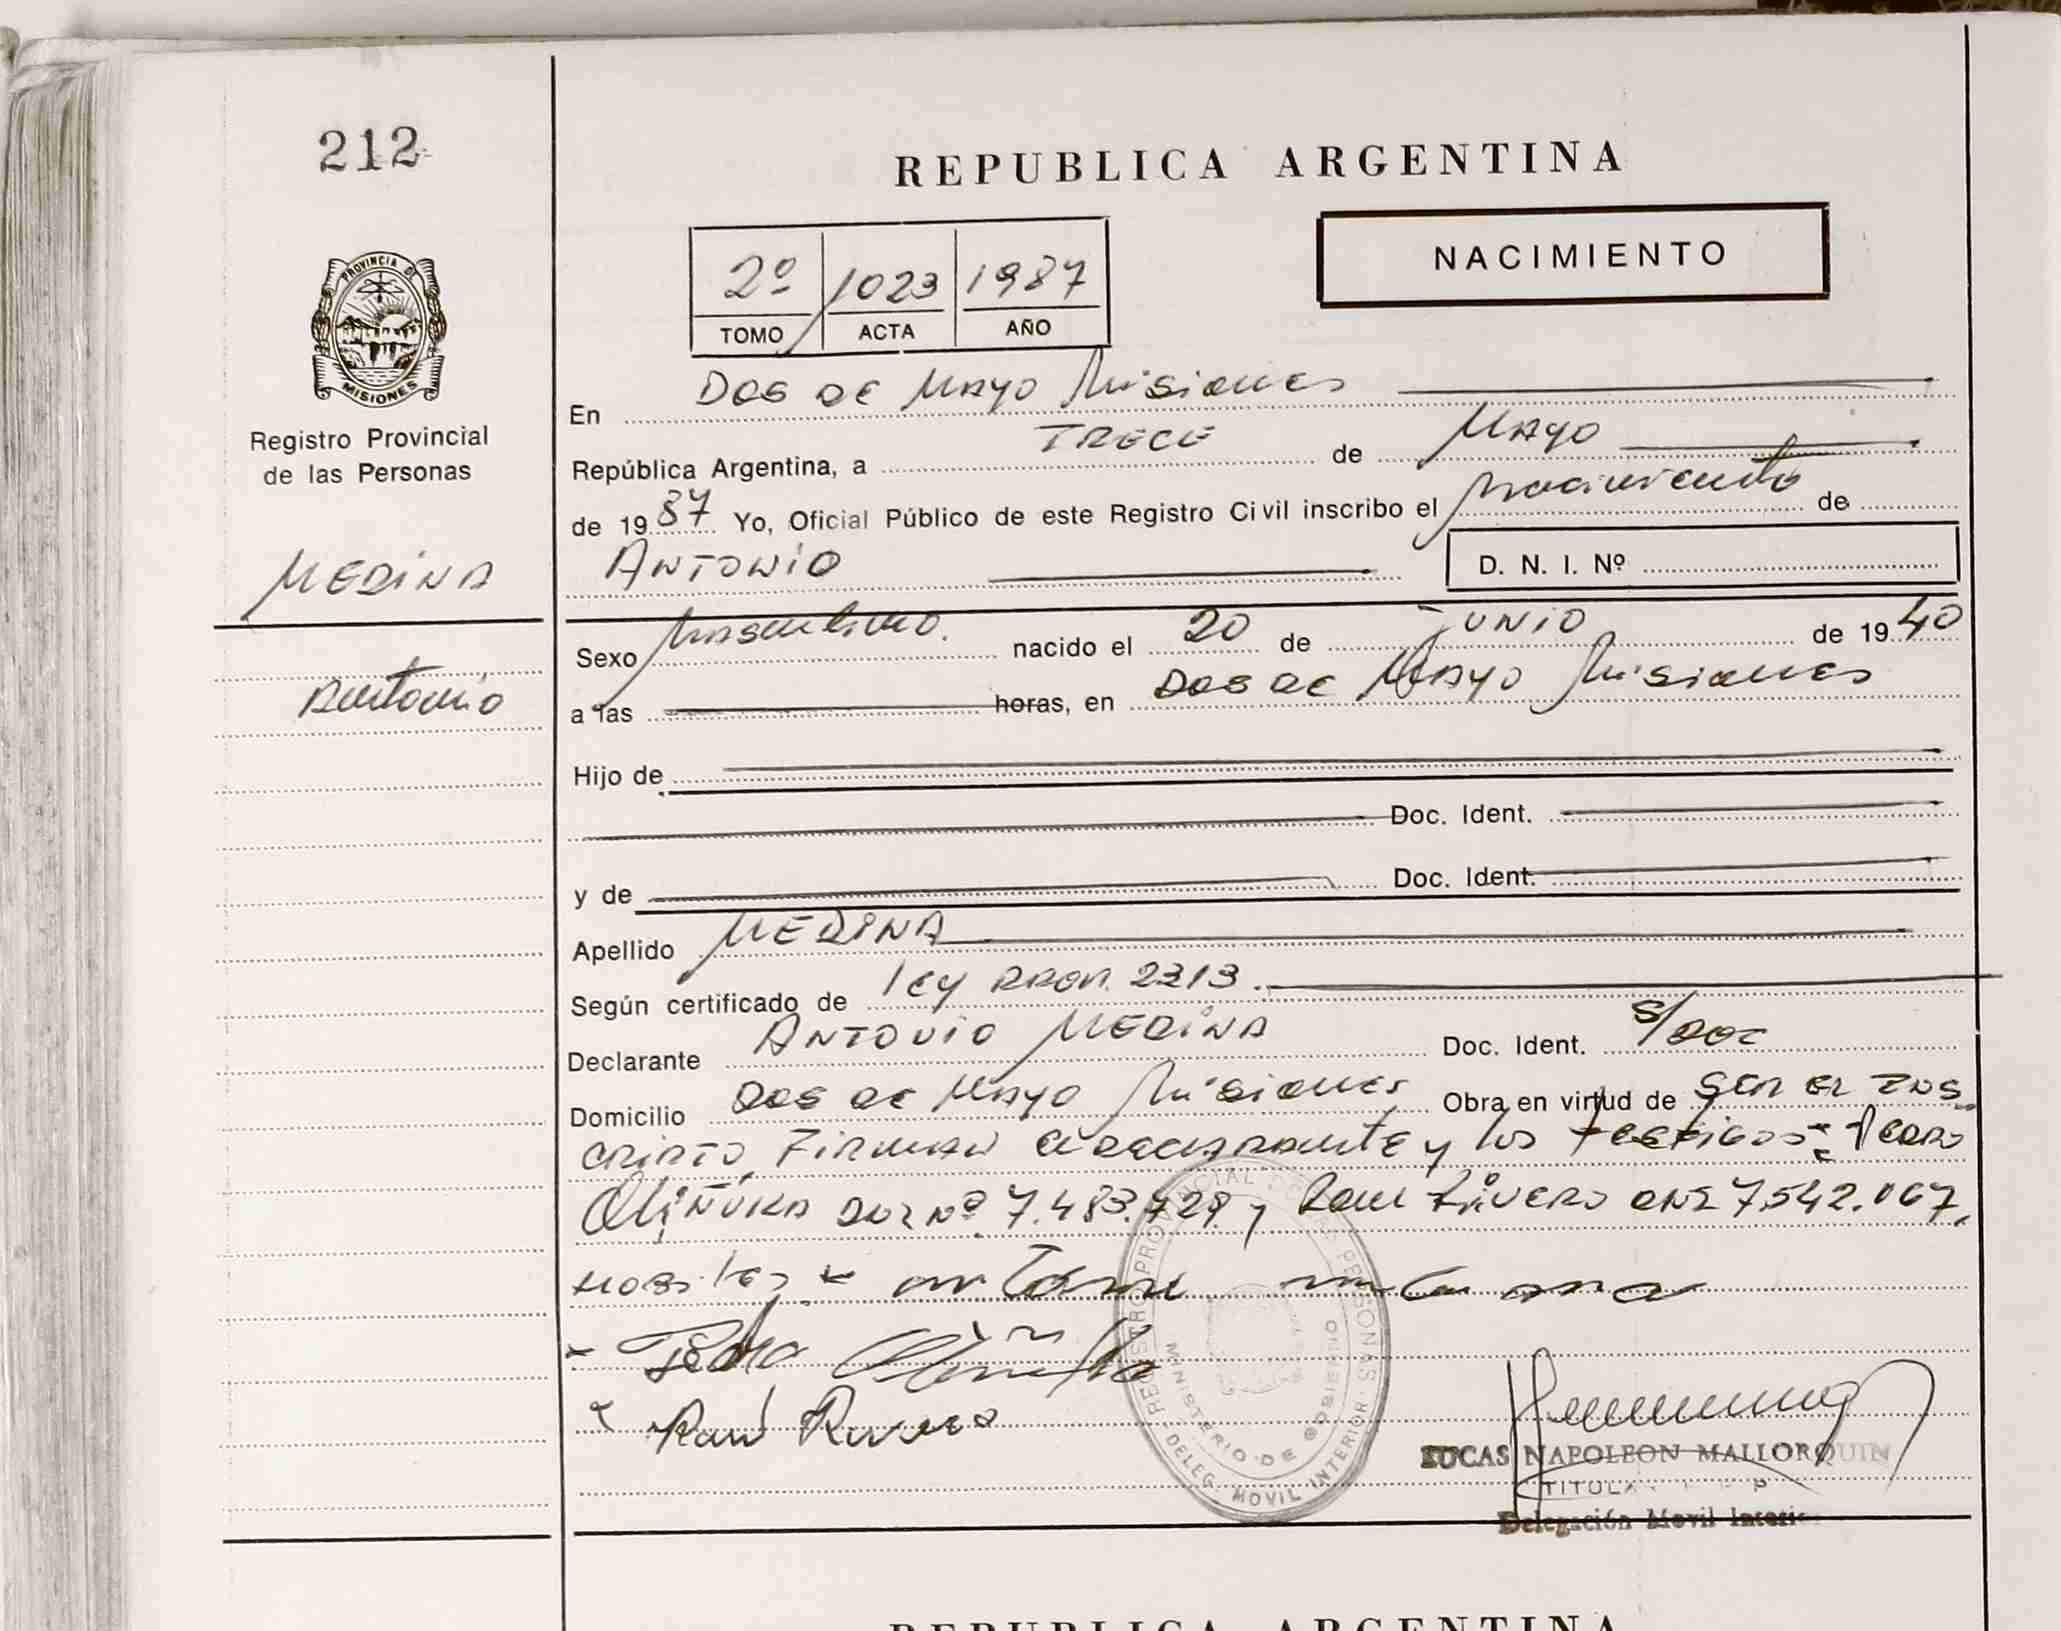 212
REPUBLICA ARGENTINA
NACIMIENTO
2º 1023 1987
TOMO ACTA AÑO
PROVINCIA DE
MISIONES
Registro Provincial
de las Personas
MEDINA
Antonio
En Dos de Mayo Misiones
República Argentina, a TRECE de Mayo
de 1987 Yo, Oficial Público de este Registro Civil inscribo el nacimiento de
ANTONIO D. N. I. Nº
Sexo Masculino. nacido el 20 de JUNIO de 1940
a las horas, en Dos de Mayo Misiones
Hijo de
Doc. Ident.
y de Doc. Ident.
Apellido MEDINA
Según certificado de ley 2313.
Declarante ANTONIO MEDINA Doc. Ident. S/Doc
Domicilio Dos de Mayo Misiones Obra en virtud de SER EL INS
CRIPTO, FIRMAN el declarante y los testigos: Pedro
Oliñuka DNI Nº 7.483.729 y Raul Rivero DNI 7.542.067,
Pedro
Raul Rivero
REGISTRO PROVINCIAL DE LAS PERSONAS
MINISTERIO DE GOBIERNO
DELEG. MOVIL INTERIOR
LUCAS NAPOLEON MALLORQUIN
Delegación Movil Interior
REPUBLICA ARGENTINA